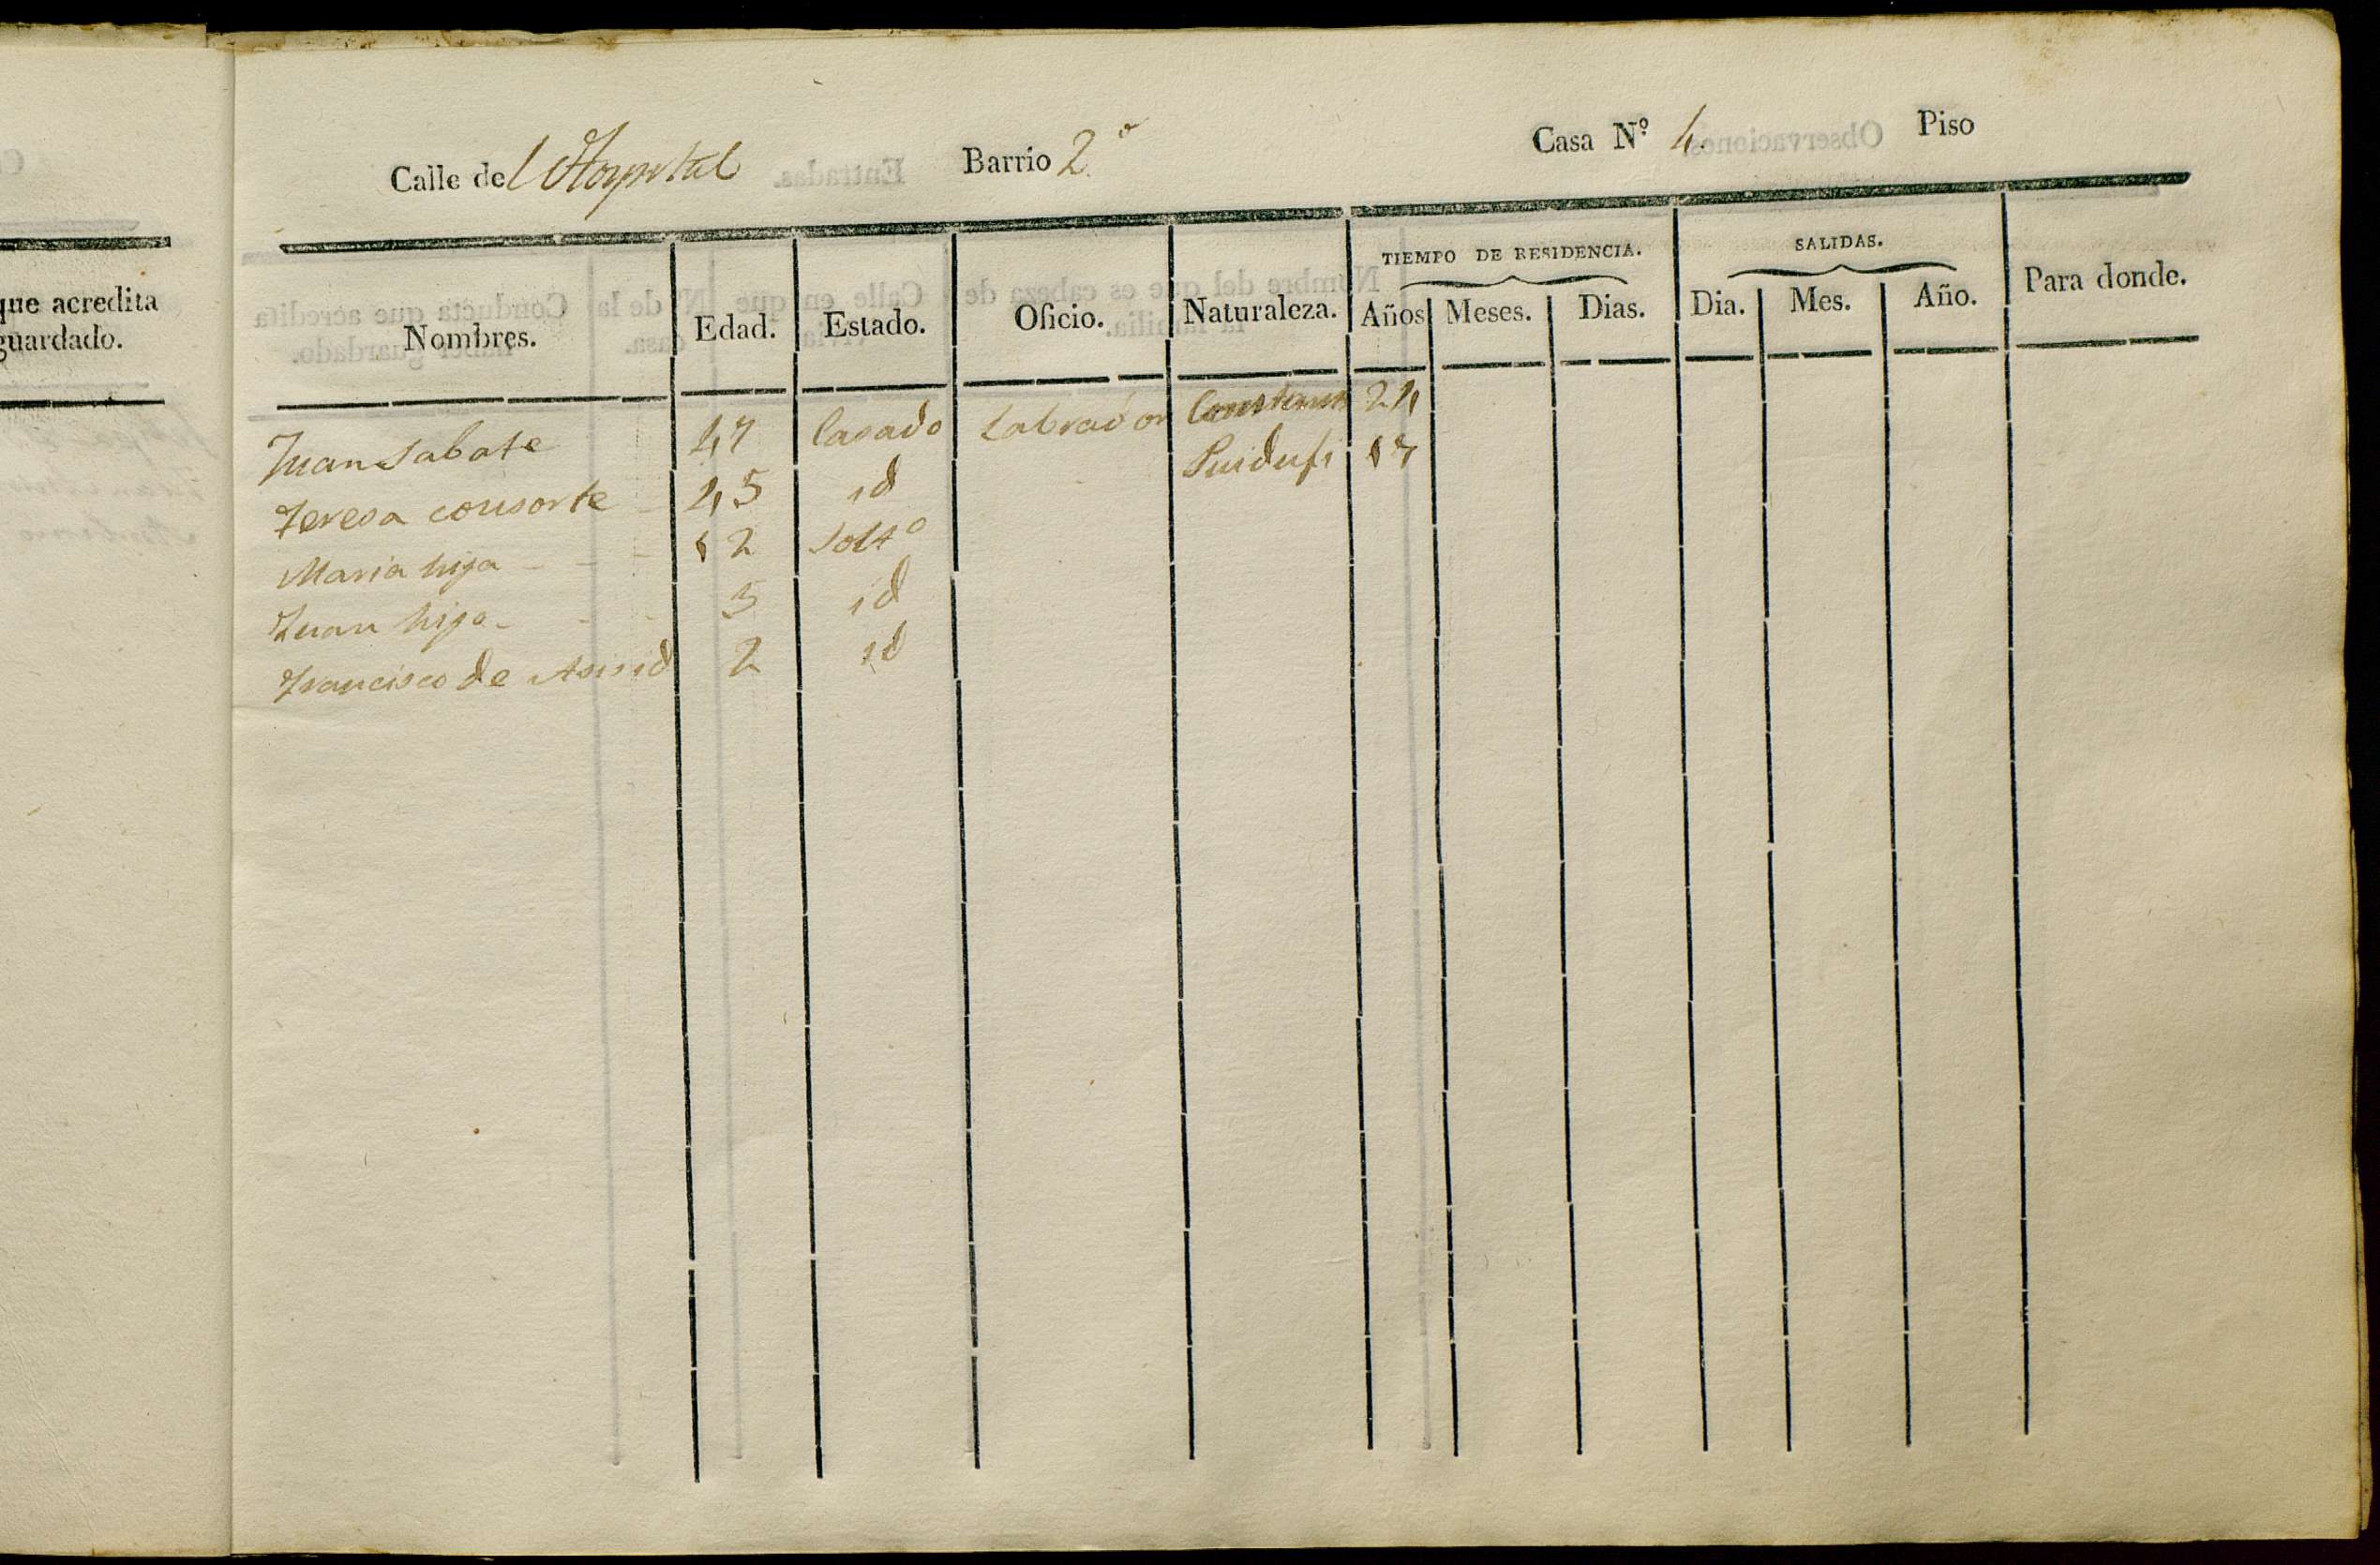 que acredita
guardado.
Calle del Hospital Barrio 2.º Casa Nº 4. Piso
TIEMPO DE RESIDENCIA. SALIDAS.
Nombres. Edad. Estado. Oficio. Naturaleza. Años Meses. Dias. Dia. Mes. Año. Para donde.
Juan Sabate 47 Casado Labrador 24
Teresa consorte 45 id 17
Maria hija 12 Solt.º
Juan hijo 5 id
Francisco de Asis id 2 id